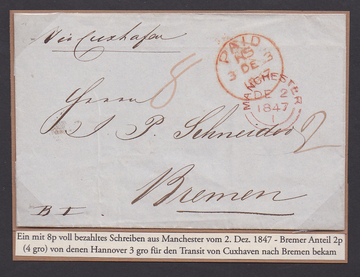 Via Cuxhafen
8
PAID
3 DE 3
1847
MANCHESTER
DE 2
1847
1
Herrn
J. P. Schneider
2
Bremen
Ein mit 8p voll bezahltes Schreiben aus Manchester vom 2. Dez. 1847 - Bremer Anteil 2p
(4 gro) von denen Hannover 3 gro für den Transit von Cuxhaven nach Bremen bekam